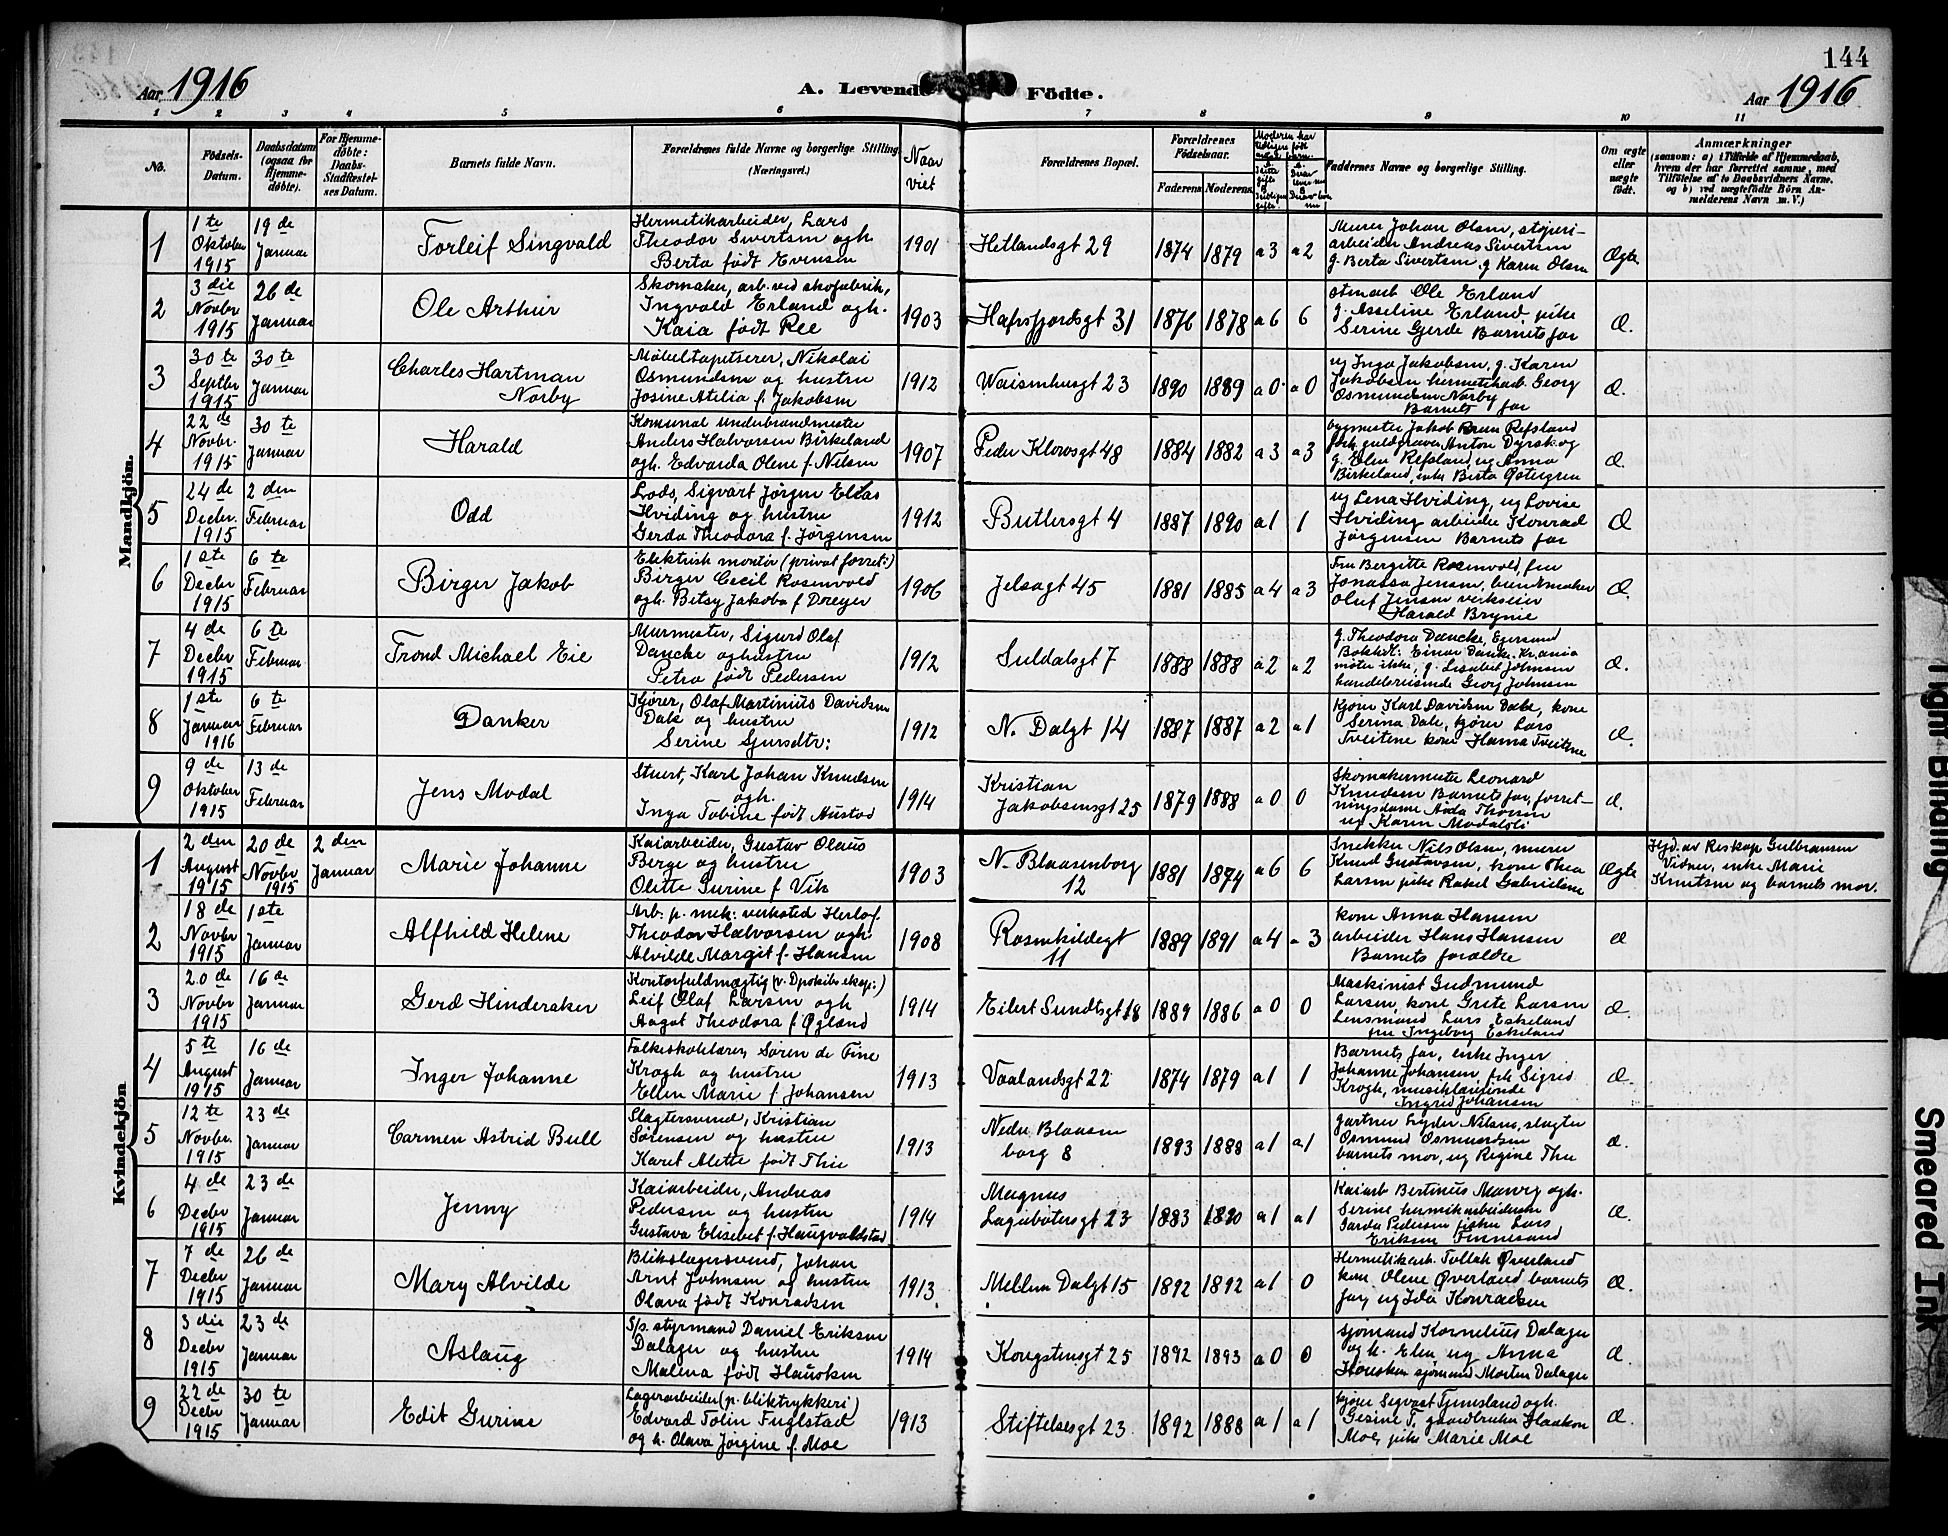 144
Aar 1916
A. Levende Födte.
Aar 1916
1 2 3 4 5 6 7 8 9 10 11
No.
Födsels-Datum.
Daabsdatum (ogsaa for Hjemme-döbte).
For Hjemme-döbte: Daabs-Stadfæstelses Datum.
Barnets fulde Navn.
Forældrenes fulde Navne og borgerlige Stilling (Næringsvei).
Naar viet
Forældrenes Bopæl.
Forældrenes Födselsaar.
Faderens Moderens
Faddernes Navne og borgerlige Stilling.
Om ægte eller uægte födt.
Anmærkninger
(saasom: a) i Tilfælde af Hjemmedaab, hvem der har forrettet samme, med Tilföielse af to Daabsvidners Navne, og b) ved uægtefödte Börn Anmelderens Navn m. V.)
Mandkjön.
1 1te Oktober 1915 19de Januar Torleif Singvald
Hermetikarbeider, Lars
Theodor Sivertsen ogh.
Berta født Evensen
1901 Hetlandsgt 29 1874 1879 a 3 a 2
Murer Johan Olsen, støperi-
arbeider Andreas Sivertsen
g. Berta Sivertsen, g Karen Olsen
Ægte
2 3die Novbr 1915 26de Januar Ole Arthur
Skomaker, arb. ved skofabrik,
Ingvald Erland ogh.
Kaia født Ree
1903 Hafrsfjordsgt 31 1876 1878 a 6 6
Ole Erland
g. Asseline Erland pike
Serine Gjerde Barnets far
Æ.
3 30te Septbr 1915 30te Januar Charles Hartman Norby
Møbeltapetserer, Nikolai
Osmundsen og hustru
Josine Atilia f. Jakobsen
1912 Waisenhusgt 23 1890 1889 a 0 a 0
ug Inga Jakobsen, g. Karen
Jakobsen hermetikarb. Georg
Osmundsen Norby
Barnets far
Æ.
4 22de Novbr. 1915 30te Januar Harald
Komunal underbrandmester
Anders Halvorsen Birkeland
ogh. Edvarda Olene f. Nilsen
1907 Peder Klowsgt 48 1884 1882 a 3 a 3
bygmester Jakob Refsland
guldgraver Anton Dyrsk og
g. Elen Refsland, ug Anna
Birkeland, enke Berta
Æ.
5 24de Decbr. 1915 2den Februar Odd
Lods, Sigvart Jørgen Elias
Hviding og hustru
Gerda Theodora f. Jørgensen
1912 Butlersgt 4 1887 1890 a 1 1
ug Lena Hviding, ug Lovise
Hviding arbeider Konrad
Jørgensen Barnets far
Æ
6 1ste Decbr 1915 6te Februar Birger Jakob
Elektrisk montør (privat forret:)
Birger Cecil Rosenvold
ogh. Betsy Jakoba f Dreyer
1906 Jelsagt 45 1881 1885 a 4 a 3
Fru Bergitte Rosenvold, fru
Jonassa Jensen, buntmaker
Oluf Jensen verkseier
Harald Bryne
Æ.
7 4de Decbr 1915 6te Februar Trond Michael Eie
Murmester, Sigurd Olaf
Dancke oghustru
Petra født Pedersen
1912 Suldalsgt 7 1888 1888 a 2 a 2
g. Theodora Dancke, Egersund
Bokhol: Einar Dancke Kr.ania
møter ikke, g. Lisabet Johnsen
handelsreisende Georg Johnsen
Æ.
8 1ste Januar 1916 6te Februar Danker
Kjører, Olaf Martinius Davidsen
Dale og hustru
Serine Sjursdtr:
1912 N. Dalgt 14 1887 1887 a 2 a 1
Kjører Karl Davidsen Dale, kone
Serina Dale, kjører Lars
Tveitene kone Hanna Tveitene
Æ.
9 9de Oktober 1915 13de Februar Jens Modal
Stuert, Karl Johan Knudsen
ogh.
Inga Tobine født Austad
1914 Kristian Jakobsensgt 25 1879 1888 a 0 0
Skomakermester Leonard
Knudsen Barnets far, forret-
ningsdame Aida Thorsen
ug Karen Modalsli
Æ.
Kvindekjön
1 2den August 1915 20de Novbr 1915 2den Januar Marie Johanne
Kaiarbeider, Gustav Olaus
Berge og hustru
Olette Gurine f Vik
1903 N. Blaasenborg 12 1881 1874 a 6 6
Snekker Nils Olsen, murer
Knud Gustavsen, kone Thea
Larsen pike Rakel Gabrielsene
Ægte
Hjd. av Reskap Gulbransen
Vidner, enke Marie
Knutsen og barnets mor.
2 18de Novbr 1915 1ste Januar Alfhild Helene
Arb: p. mek: verksted Herlof
Theodor Halvorsen ogh.
Alvilde Margit f. Hansen
1908 Rosenkildegt 11 1889 1891 a 4 a 3
kone Anna Hansen
arbeider Hans Hansen
Barnets forældre
Æ
3 20de Novbr 1915 16de Januar Gerd Hinderaker
Kontorfuldmægtig
Leif Olaf Larsen ogh
Aagot Theodora f. Øgland
1914 Eilert Sundtsgt 18 1889 1886 a 0 0
Maskinist Gudmund
Larsen, kone Grete Larsen
Lensmand Lars Eskeland
fru Ingeborg Eskeland
Æ.
4 5te August 1915 16de Januar Inger Johanne
Folkeskolelærer, Søren de Fine
Krogh og hustru
Ellen Marie f Johansen
1913 Vaalandsgt 22 1874 1879 a 1 1
Barnets far, enke Inger
Johanne Johansen, frk Sigrid
Krogh, musiklærerinde
Ingrid Johansen
Æ.
5 12te Novbr. 1915 23de Januar Carmen Astrid Bull
Slagtersvend, Kristian
Sørensen og hustru
Karet Alette født Thu
1913 Nedre Blaasenborg 8 1893 1888 a 1 a 1
gartner Lyder Nilsen, slagter
Osmund Osmundsen
barnets mor, ug Regine Thu
Æ.
6 4de Decbr 1915 23de Januar Jenny
Kaiarbeider, Andreas
Pedersen og hustru
Gustava Elisebet f. Haugvaldstad
1914 Magnus Lagabøtersgt 23 1883 1890 a 1 a 1
Kaiarb Bertinus ogh.
Serine hermetikarbeiderske
Pedersen fisker Lars
Eriksen Finnesand
Æ.
7 7de Decbr 1915 26de Januar Mary Alvilde
Blikslagersvend, Johan
Arnt Johnsen og hustru
Olava født Konradsen
1913. Mellem Dalgt 15 1892 1892 a 1 0
Hermetikarb. Tollak Øverland
kone Olene Øverland barnets
far, ug Ida Konradsen
Æ.
8 3die Decbr 1915 23de Januar Aslaug
S/s. styrmand Daniel Eriksen
Dalager og hustru
Malena født Hauskem
1914 Kongstensgt 25 1892 1893 a 0 0
sjømand Kornelius Dalager
og h. Elen ug Anna
sjømand Morten Dalager
Æ.
9 22de Decbr 1915 30te Januar Edit Gurine
Lagerarbeider (p. bliktrykkeri)
Edvard Tolin Fuglstad
og h. Olava Jørgine f. Moe
1913 Stiftelsesgt 23 1892 1888 a 1 a 1
kjører Sigvart Tjensland ogh.
Gesine T. gaardbruker Haakon
Moe, pike Marie Moe
Æ.
Tight Binding
Smeared Ink